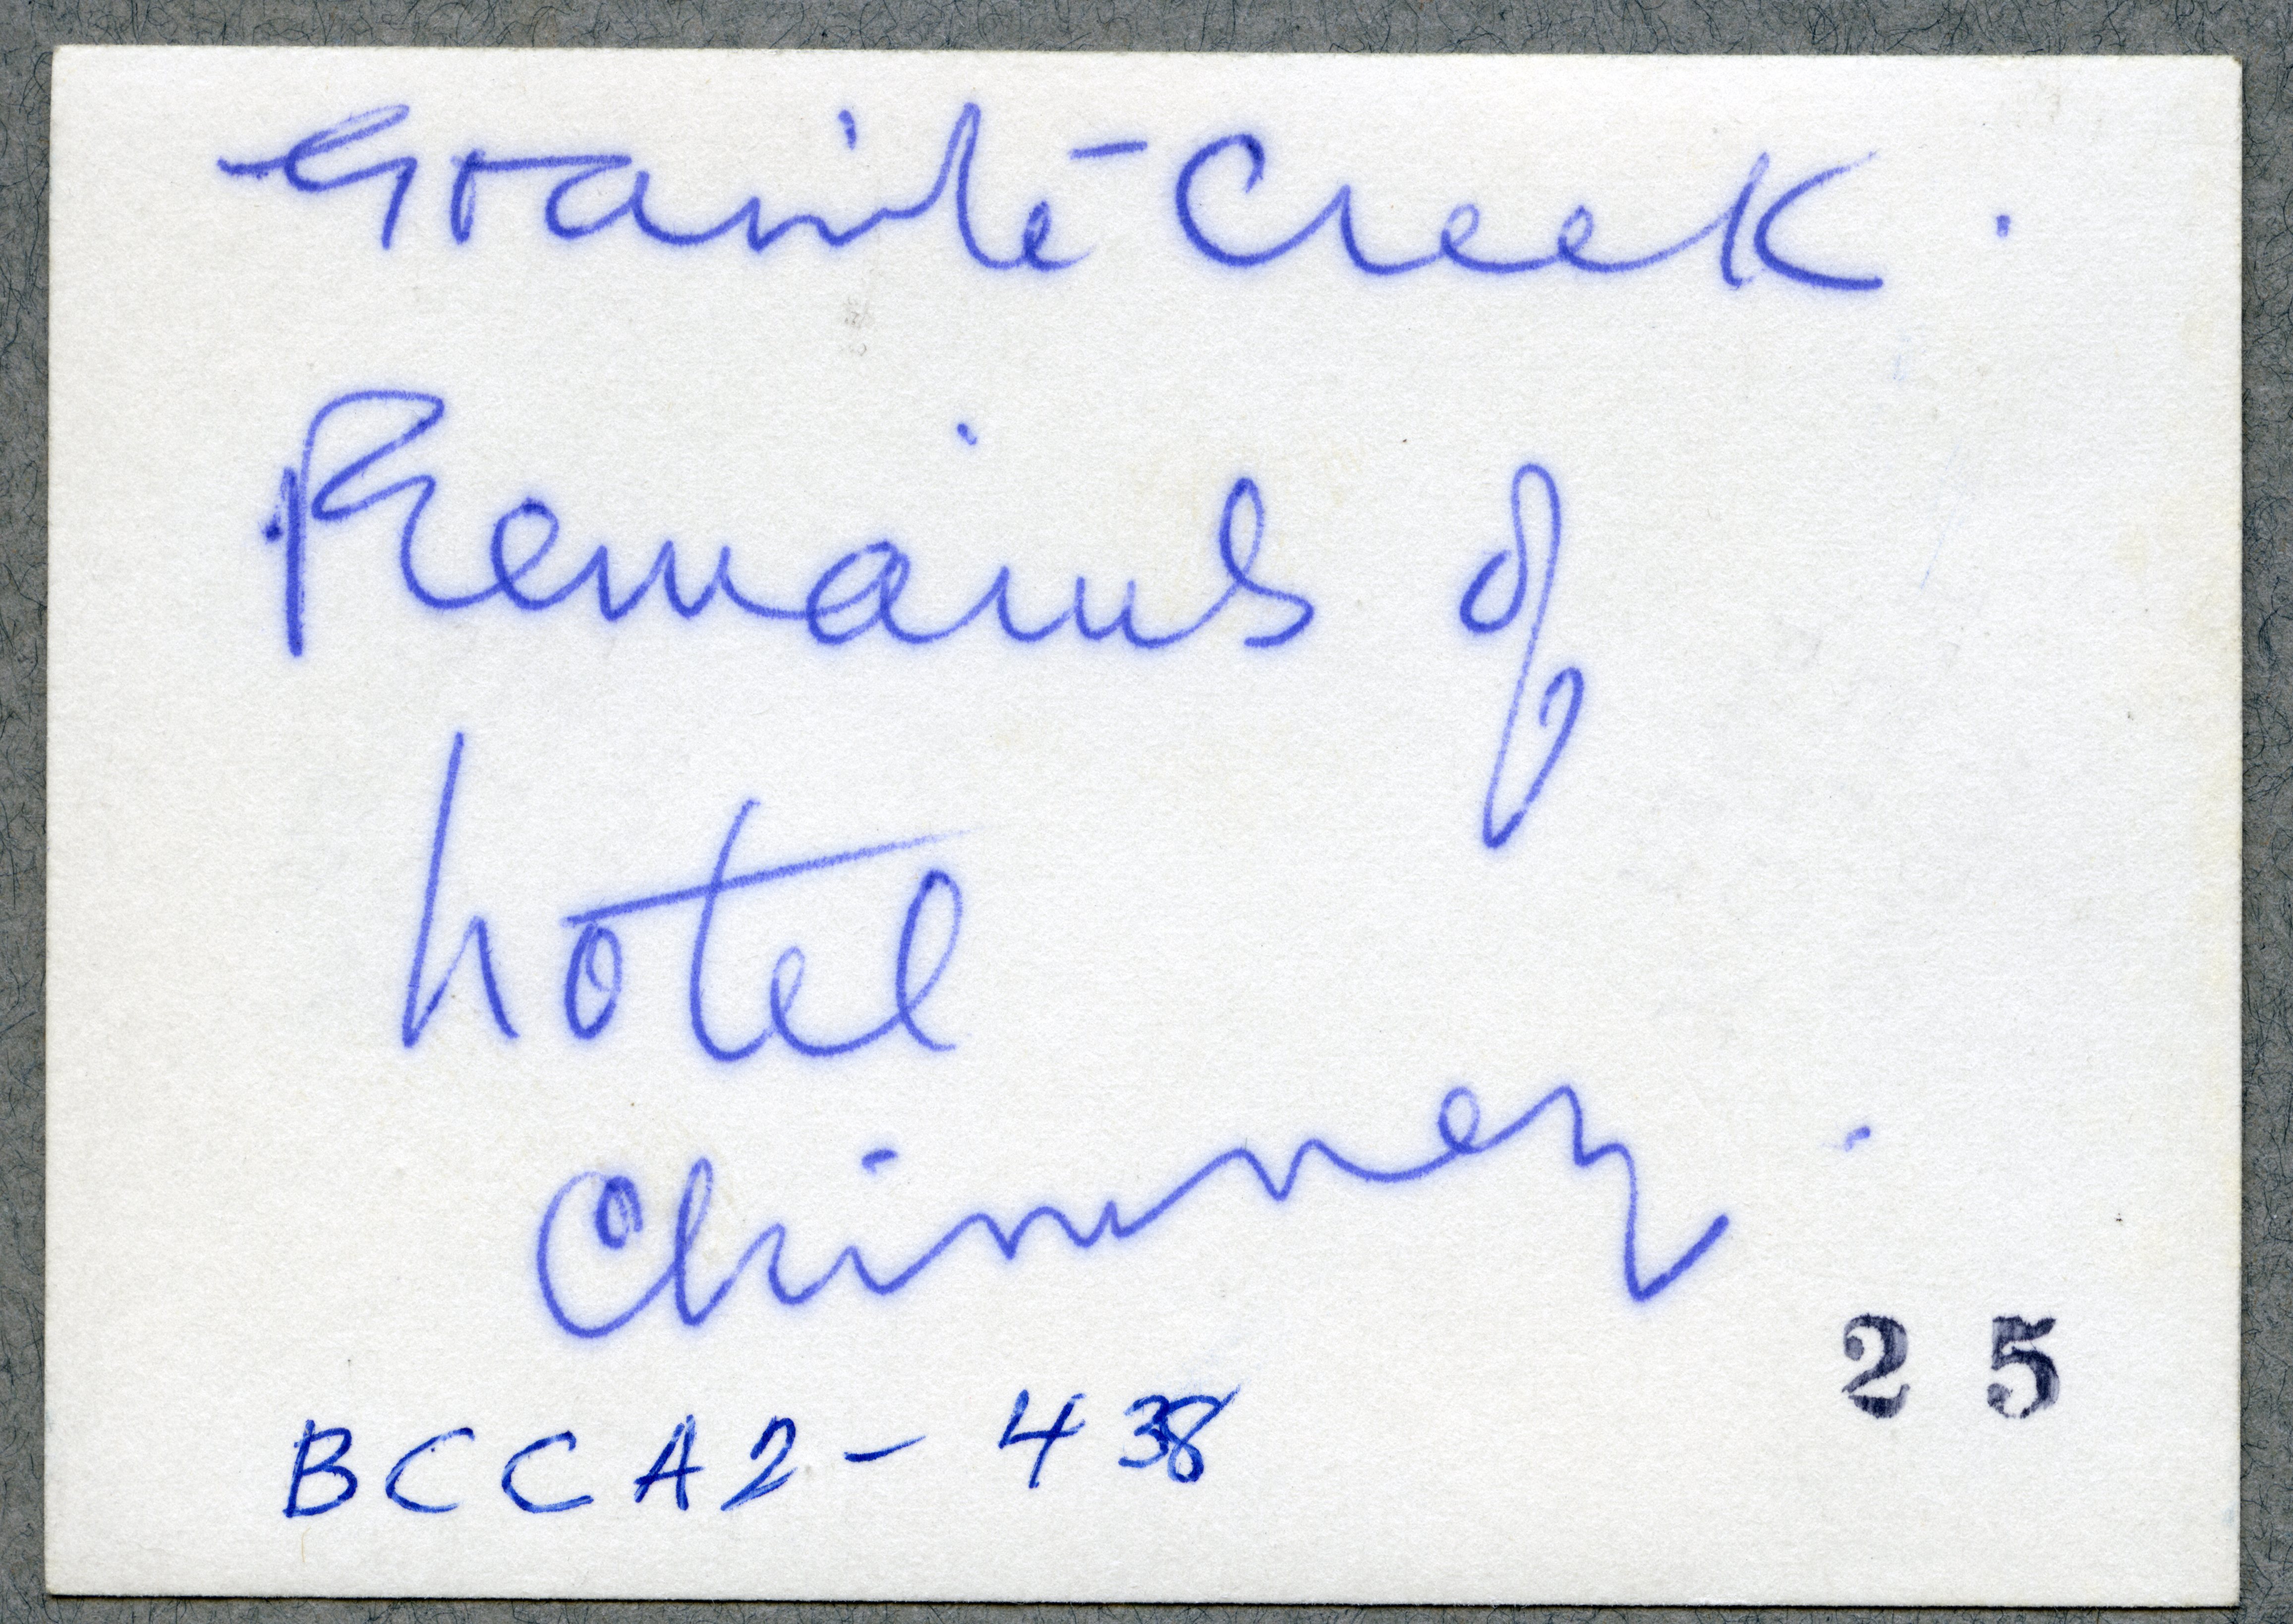 Granite Creek.
Remains of
hotel
Chimney.
25
BCCA2-438